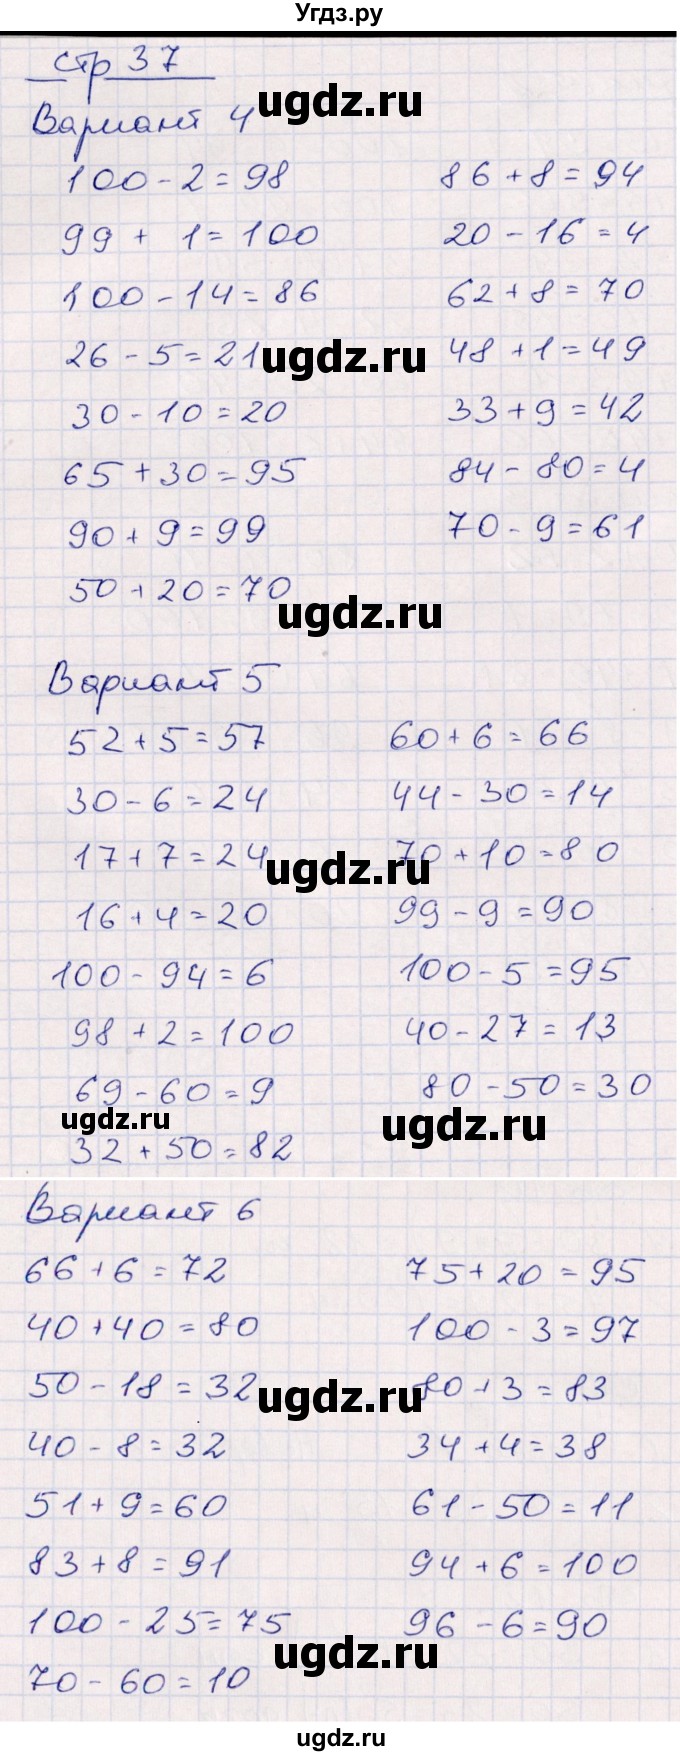 Угдз.ру
стр 37
ugdz.ru
Вариант 4
100 - 2 = 98 86 + 8 = 94
99 + 1 = 100 20 - 16 = 4
100 - 14 = 86 62 + 8 = 70
26 - 5 = 21 48 + 1 = 49
ugdz.ru
30 - 10 = 20 33 + 9 = 42
65 + 30 = 95 84 - 80 = 4
90 + 9 = 99 70 - 9 = 61
50 + 20 = 70
ugdz.ru
Вариант 5
52 + 5 = 57 60 + 6 = 66
30 - 6 = 24 44 - 30 = 14
17 + 7 = 24 70 + 10 = 80
ugdz.ru
16 + 4 = 20 99 - 9 = 90
100 - 94 = 6 100 - 5 = 95
98 + 2 = 100 40 - 27 = 13
69 - 60 = 9 80 - 50 = 30
ugdz.ru ugdz.ru
32 + 50 = 82
Вариант 6
66 + 6 = 72 75 + 20 = 95
40 + 40 = 80 100 - 3 = 97
50 - 18 = 32 80 + 3 = 83
ugdz.ru
40 - 8 = 32 34 + 4 = 38
51 + 9 = 60 61 - 50 = 11
83 + 8 = 91 94 + 6 = 100
100 - 25 = 75 96 - 6 = 90
ugdz.ru
70 - 60 = 10
ugdz.ru